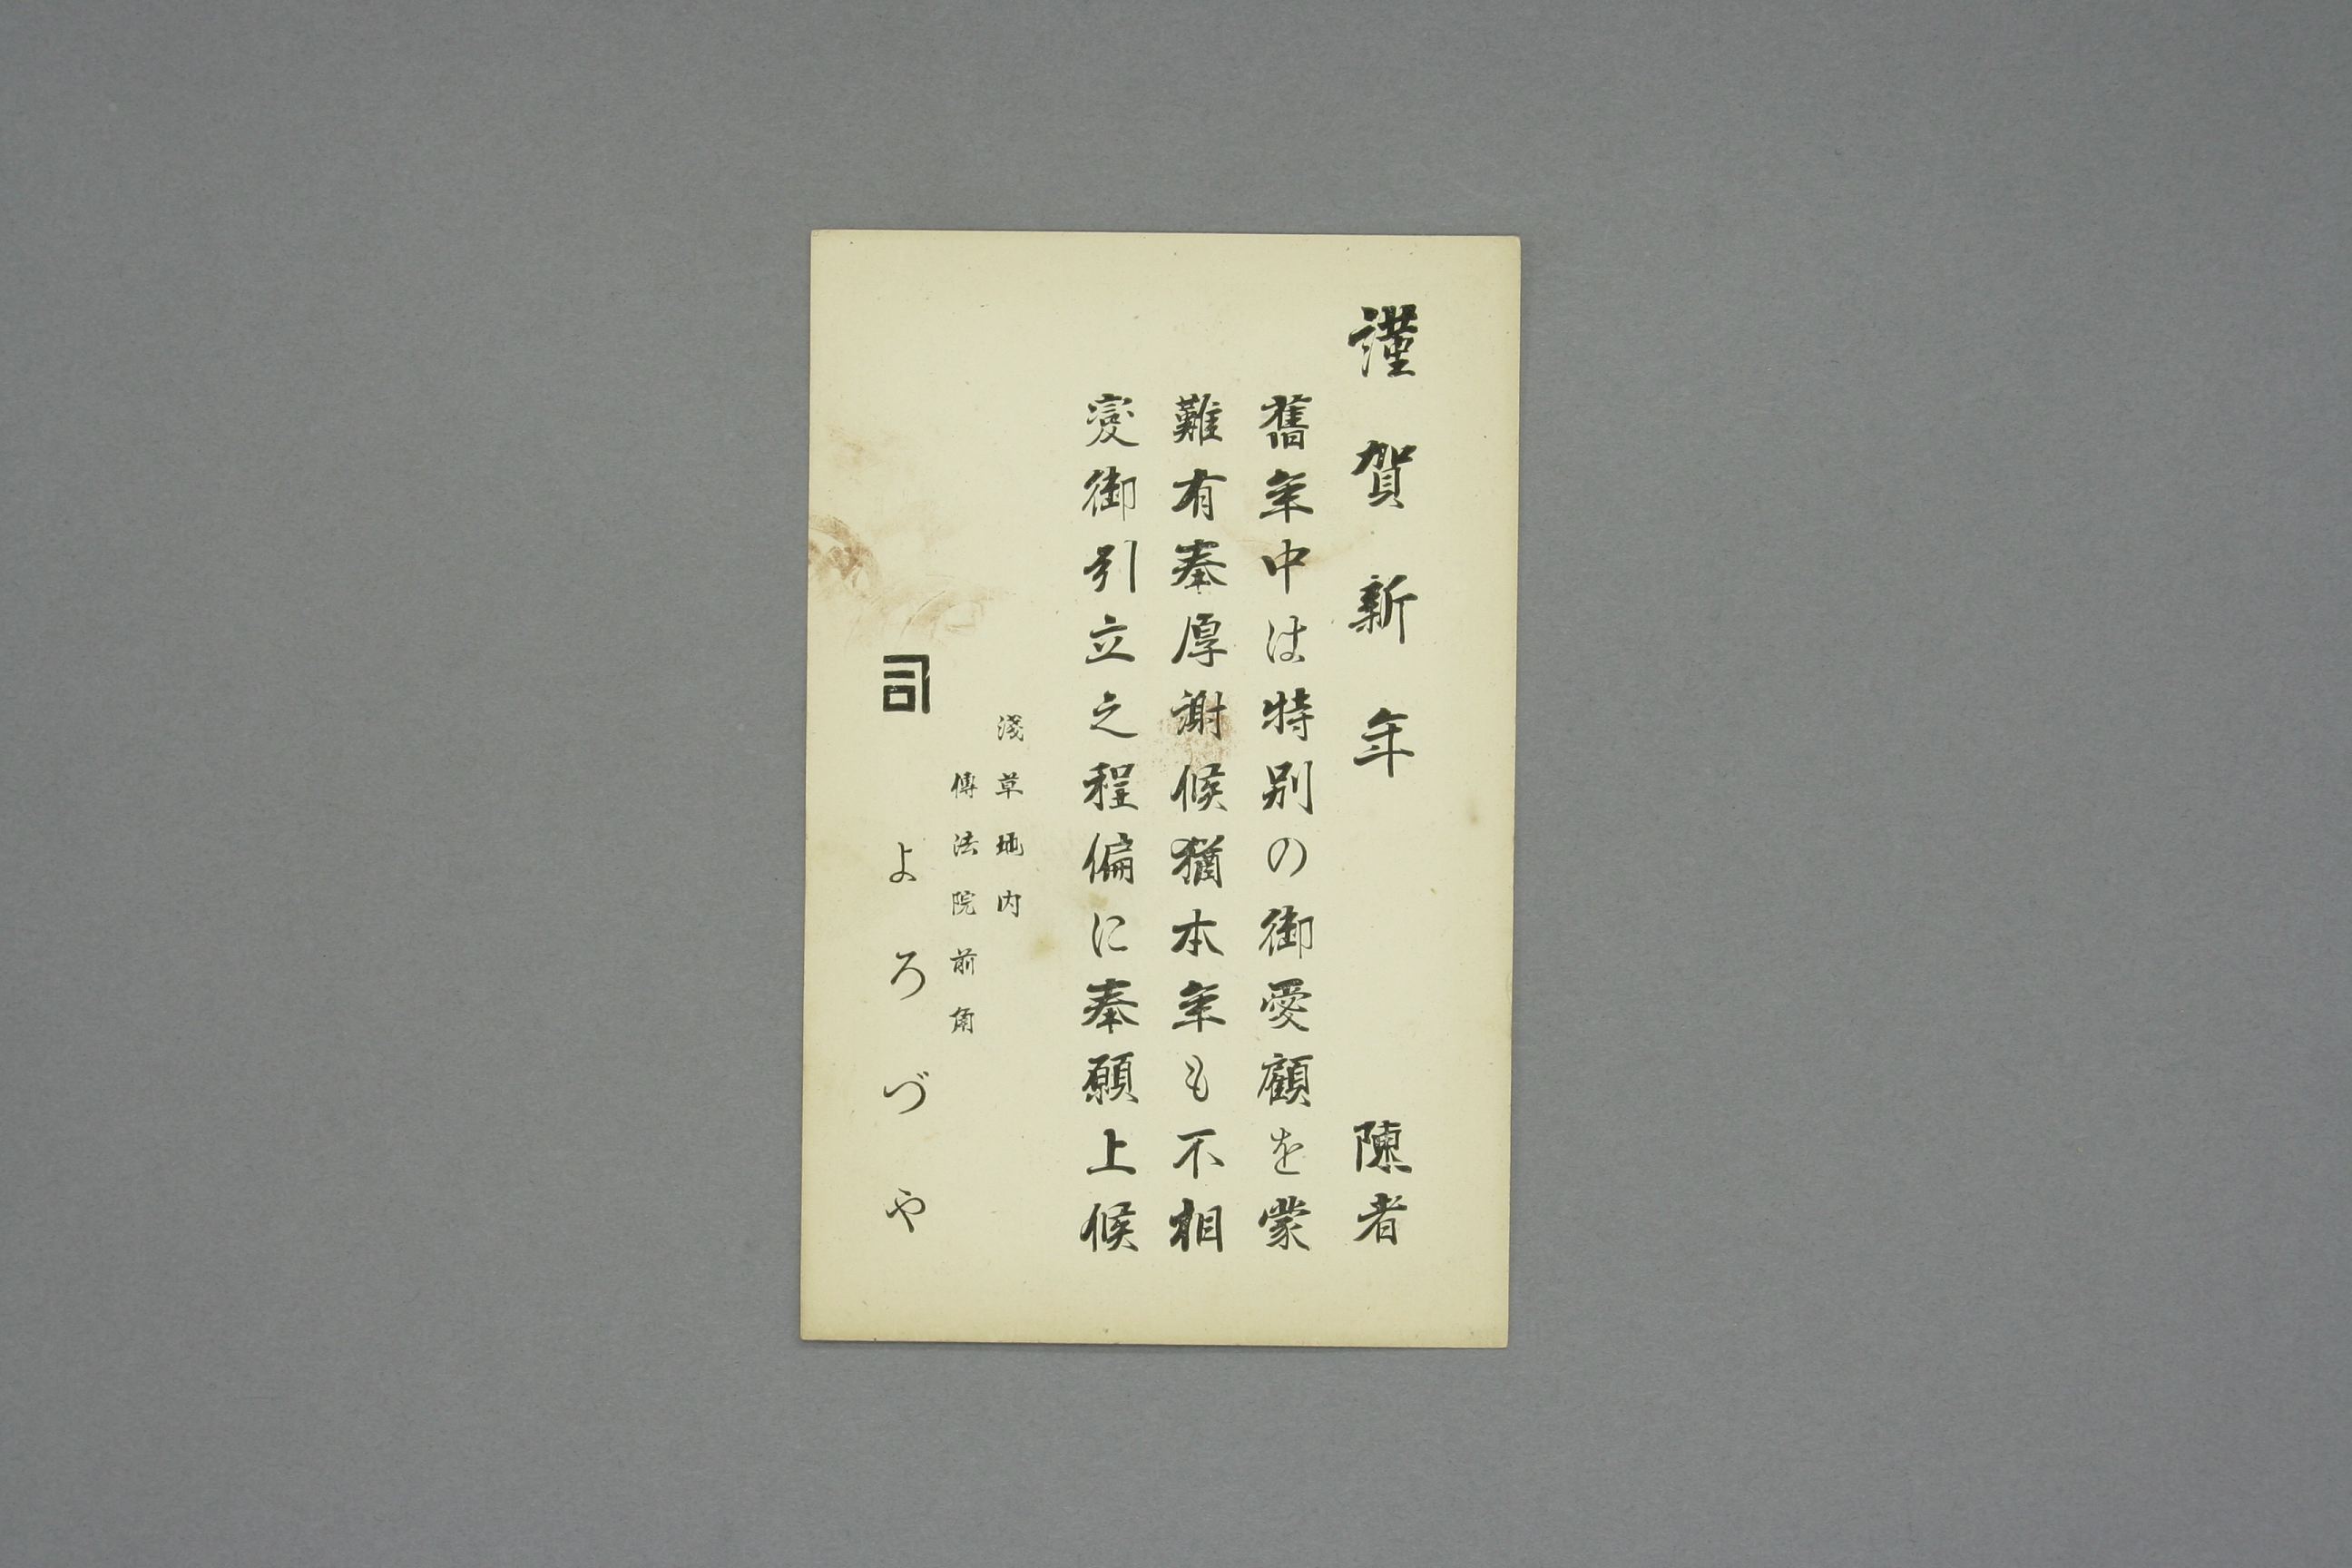 謹賀新年 陳者
舊年中は特別の御愛顧を蒙
難有奉厚謝候猶本年も不相
變御引立之程偏に奉願上候
淺草地内
傳法院前角
司 よろづや